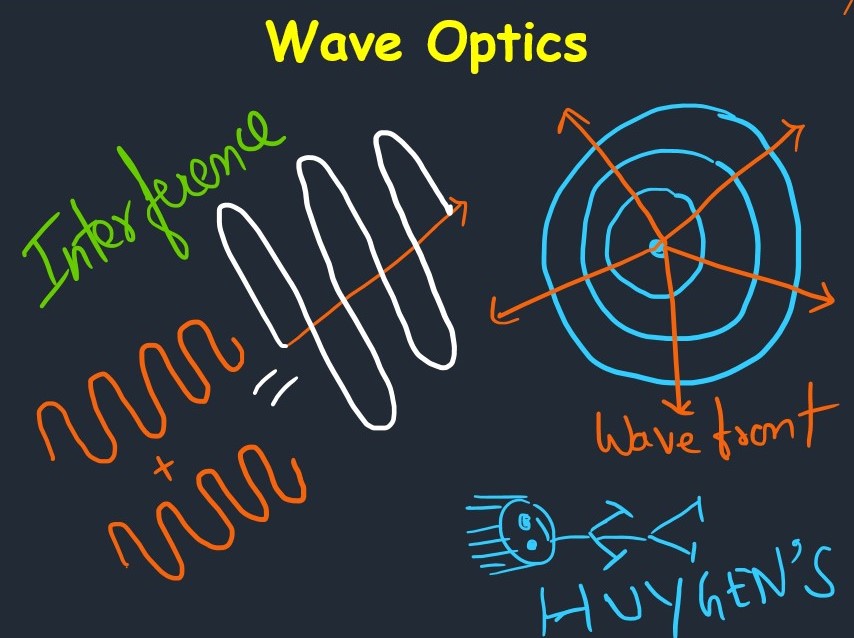 Wave Optics
Interference
+
=
Wave front
HUYGEN'S